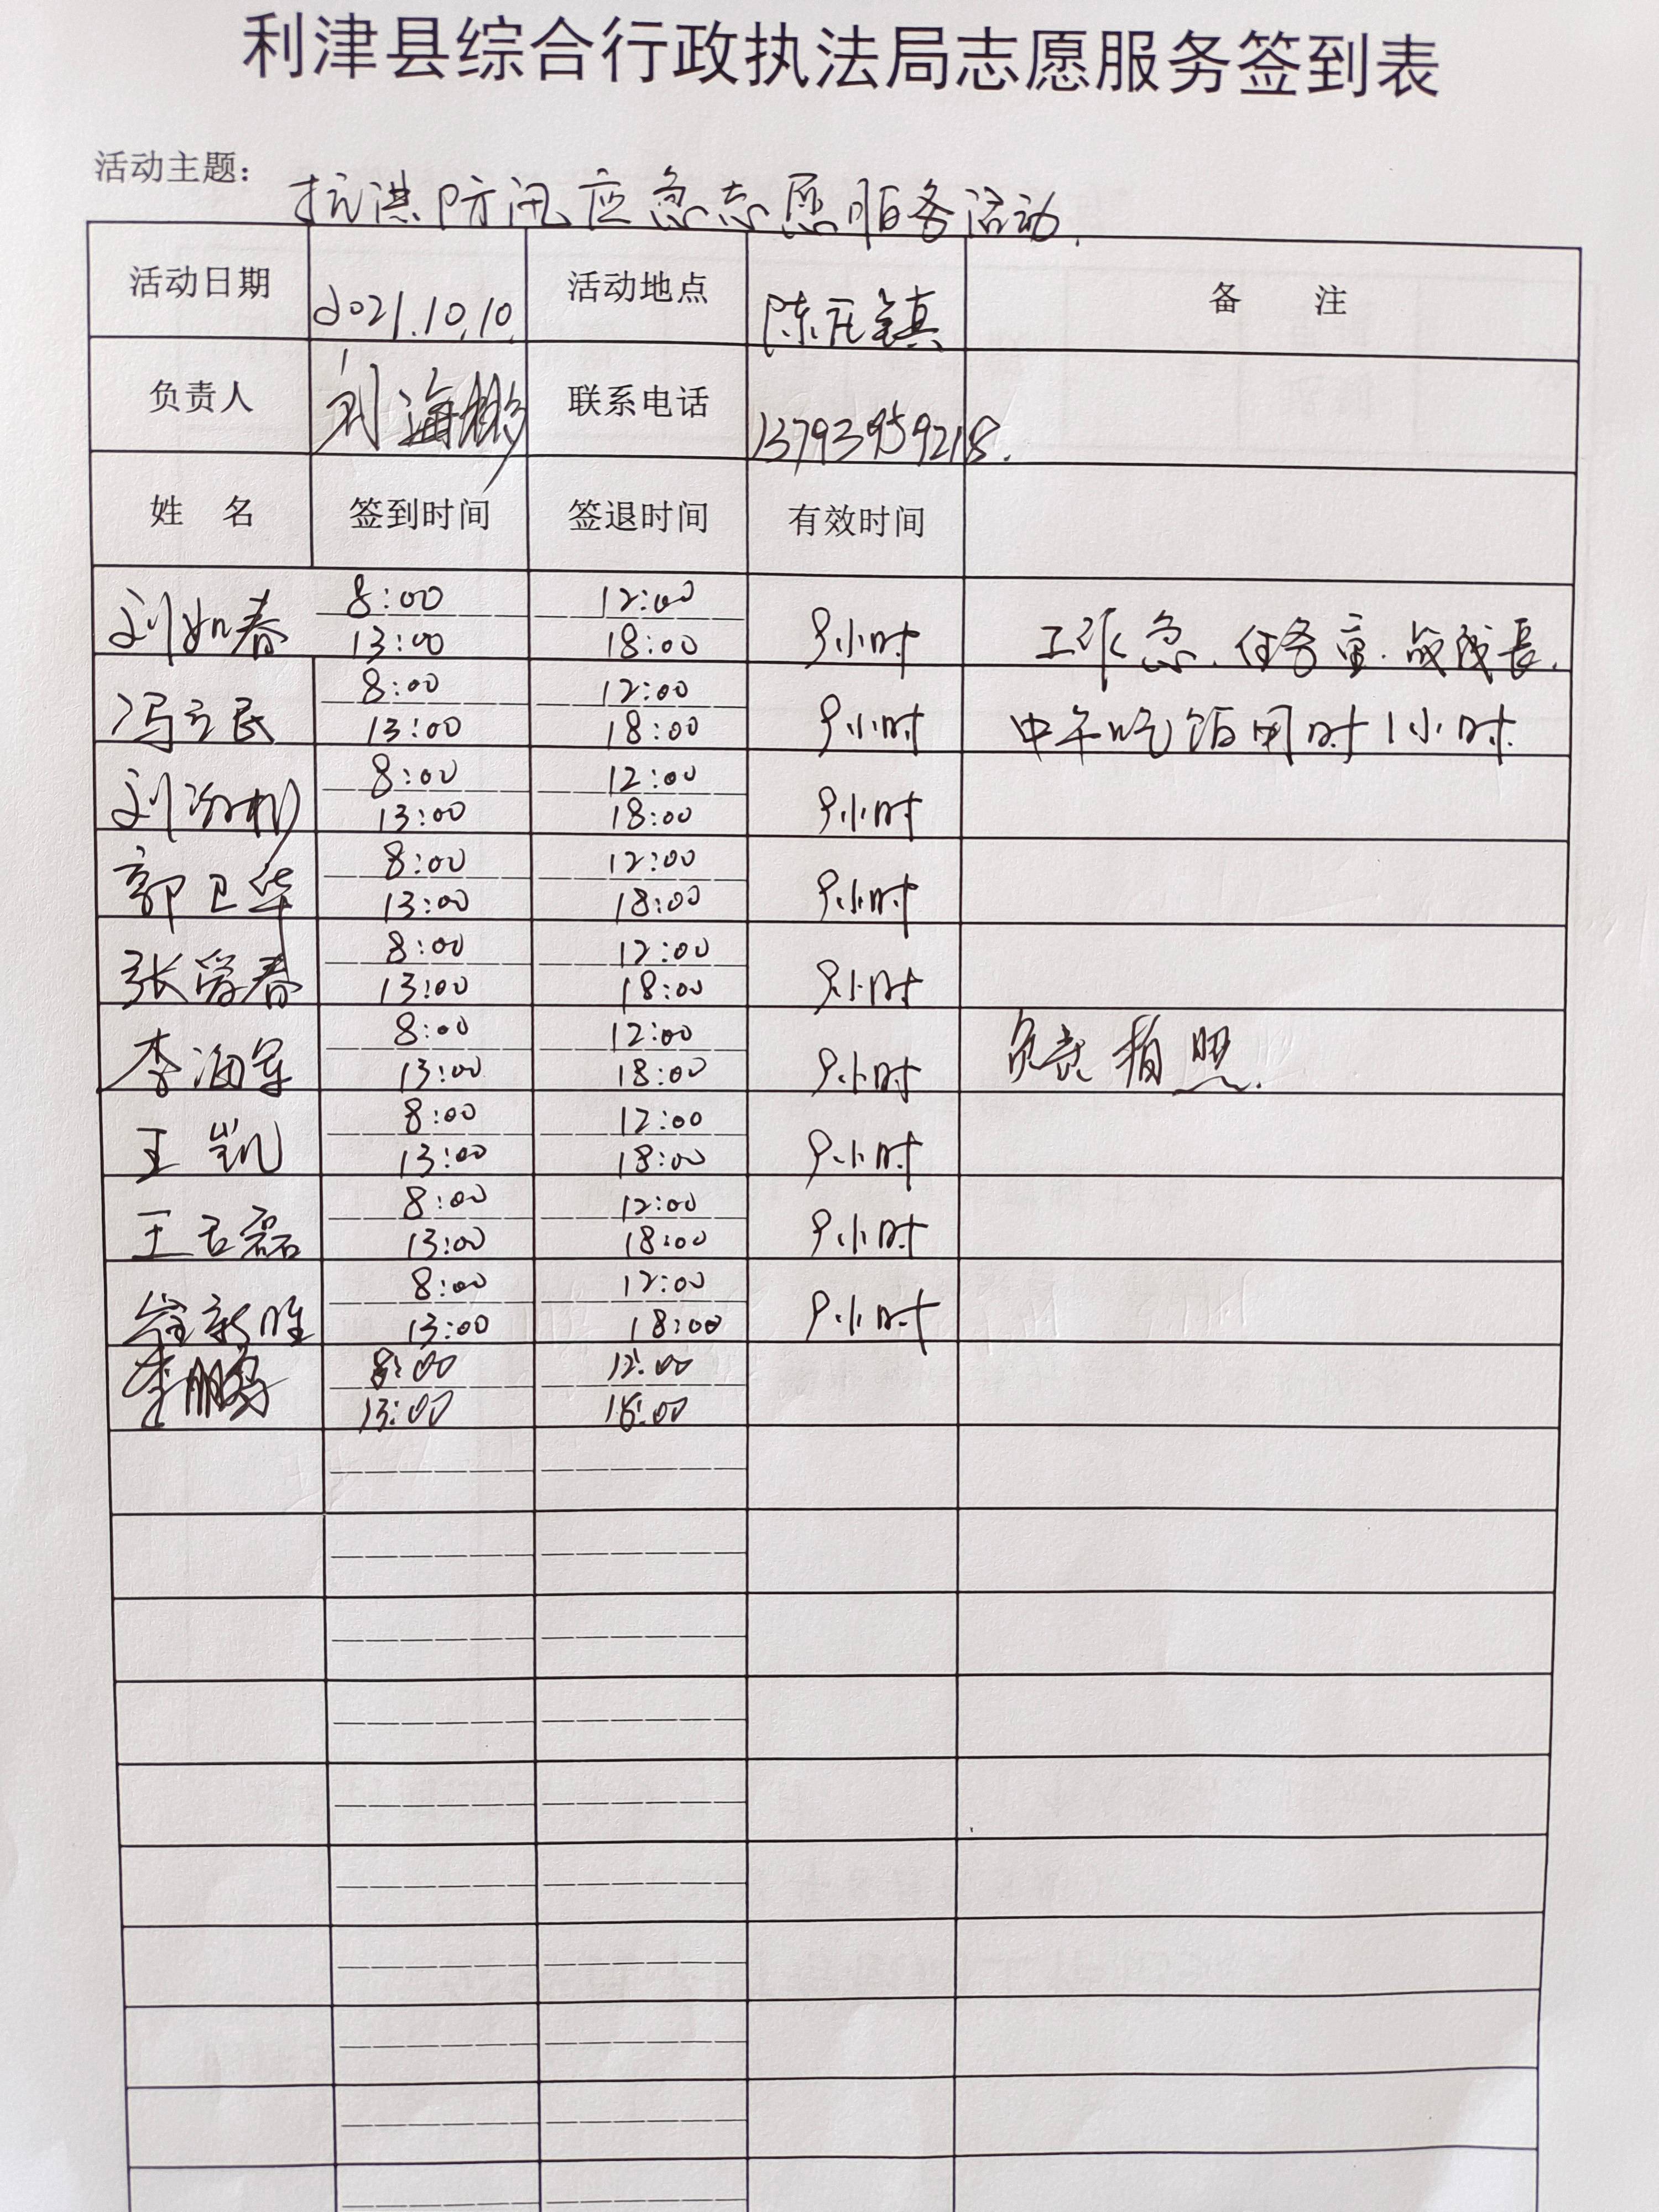 利津县综合行政执法局志愿服务签到表
活动主题：抗洪防汛应急志愿服务活动.
活动日期 2021.10.10. 活动地点 陈庄镇 备 注
负责人 刘海彬 联系电话 13793959218.
姓 名 签到时间 签退时间 有效时间
刘如春 8:00 12:00 9小时 工作急.任务重.战线长.
13:00 18:00
冯立民 8:00 12:00 9小时 中午吃饭用时1小时
13:00 18:00
刘海彬 8:00 12:00 9小时
13:00 18:00
郭卫华 8:00 12:00 9小时
13:00 18:00
张爱春 8:00 12:00 9小时
13:00 18:00
李海军 8:00 12:00 9小时 负责拍照.
13:00 18:00
王凯 8:00 12:00 9小时
13:00 18:00
王石磊 8:00 12:00 9小时
13:00 18:00
崔新胜 8:00 12:00 9小时
13:00 18:00
李鹏 8:00 12:00
13:00 18:00